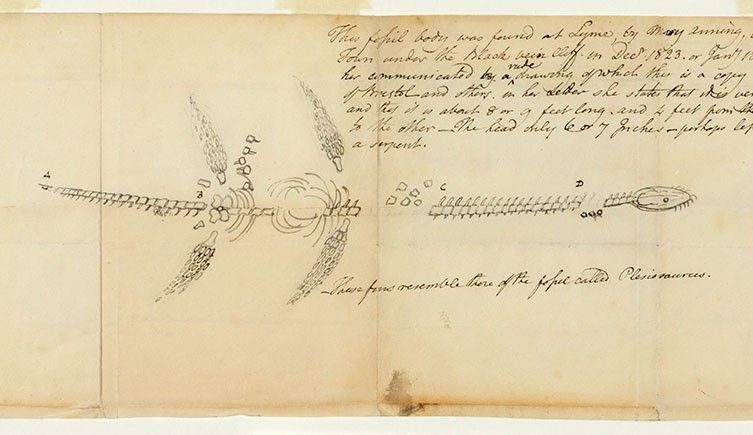 This fossil body was found at Lyme, by Mary Anning,
Town under the Black vein Cliff. in Decr 1823. or Jany
rude
her communicated by a ^ drawing of which this is a copy
of Bristol and others. in her Letter she states that it is
and that it is about 8 or 9 feet long. and 4 feet from
to the other — The head only 6 or 7 Inches — perhaps
a serpent.
A
B
C
D
— These fins resemble those of the fossil called Plesiosaurus.